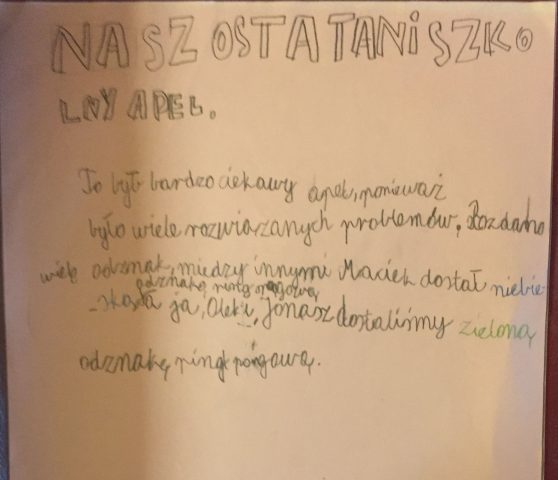 NASZ OSTATANI SZKO
LNY APEL.
To był bardzo ciekawy apel, ponieważ
było wiele rozwiazanych problemów. Rozdano
wiele odznak, między innymi Maciek dostał niebie
odznakę ping pongową
-ską a ja, Olek i Jonasz dostaliśmy zieloną
odznakę ping pongową.